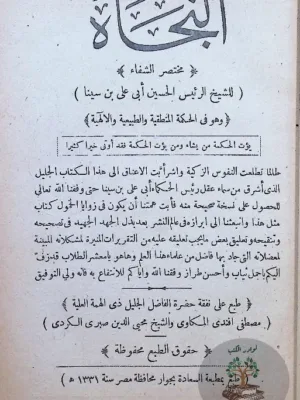 النجاة
﴿ مختصر الشفاء ﴾
( للشيخ الرئيس الحسين أبي على بن سينا )
﴿ وهو فى الحكمة المنطقية والطبيعية والالهية ﴾
يؤت الحكمة من يشاء ومن يؤت الحكمة فقد أوتى خيرا كثيرا
طالما تطلعت النفوس الزكية واشرأبت الاعناق الى هذا الكتاب الجليل
الذى أشرق من سماء عقل رئيس الحكماء أبى على بن سينا حتى وفقنا الله تعالى
للحصول على نسخة صحيحة منه فأبت همتنا أن يكون فى زوايا الخمول كتاب
مثل هذا وانبعثنا الى ابرازه فى عالم النشر بعد بذل الجهد الجهيد فى تصحيحه
وتنقيحه وتعليق بعض ما يجب تعليقه عليه من التقريرات المنيرة لمشكلاته المبينة
لمعضلاته التى جاد بها أفاضل من علماء هذا العلم وهاهو يامعشر الطلاب قد بزف
اليكم بأجمل ثياب وأحسن طراز وفقنا الله واياكم للانتفاع به فانه ولى التوفيق
﴿ طبع على نفقة حضرة الفاضل الجليل ذى الهمة العلية ﴾
مصطفى افندى المكاوى والشيخ محيى الدين صبرى الكردى
﴿ حقوق الطبع محفوظة ﴾
بمطبعة السعادة بجوار محافظة مصر سنة ١٣٣١ ه